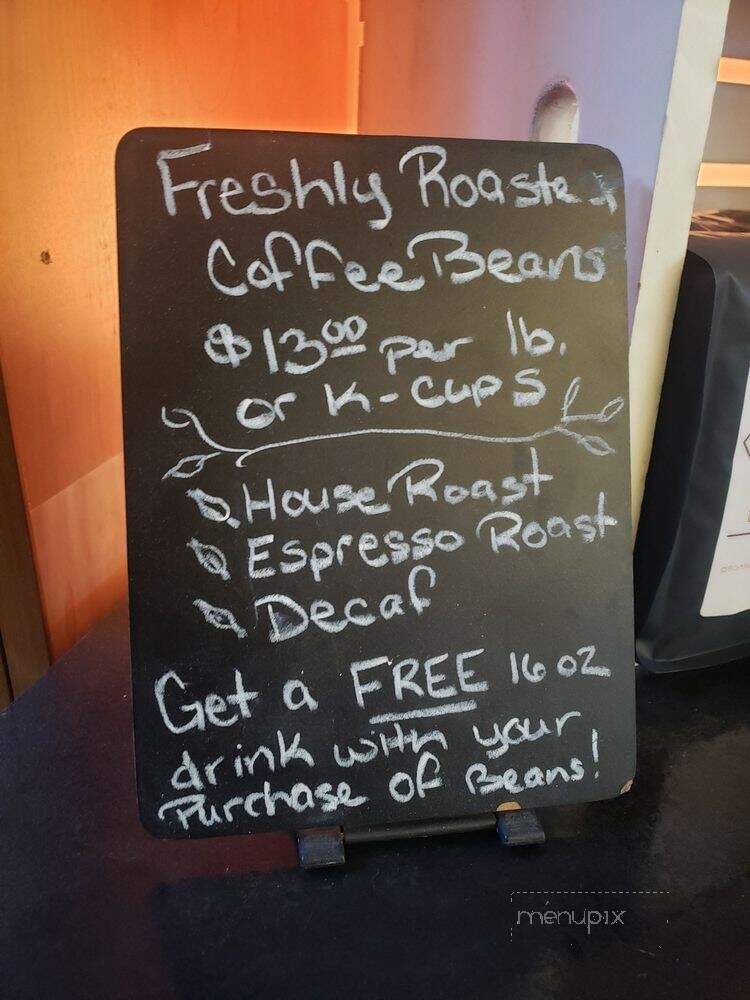 Freshly Roasted
Coffee Beans
$13.00 per lb.
or K-cups
House Roast
Espresso Roast
Decaf
Get a FREE 16 oz
drink with your
Purchase of Beans!
menupix